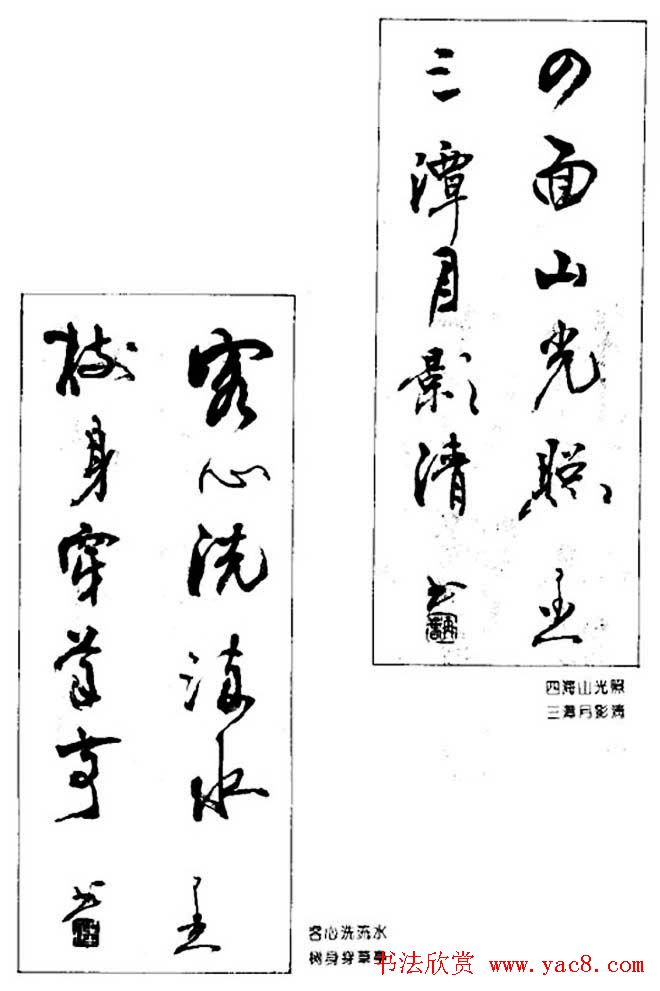 四面山光照
三潭月影清
四海山光照
三潭月影清
客心洗流水
树身穿草亭
客心洗流水
树身穿草亭
书法欣赏 www.yac8.com